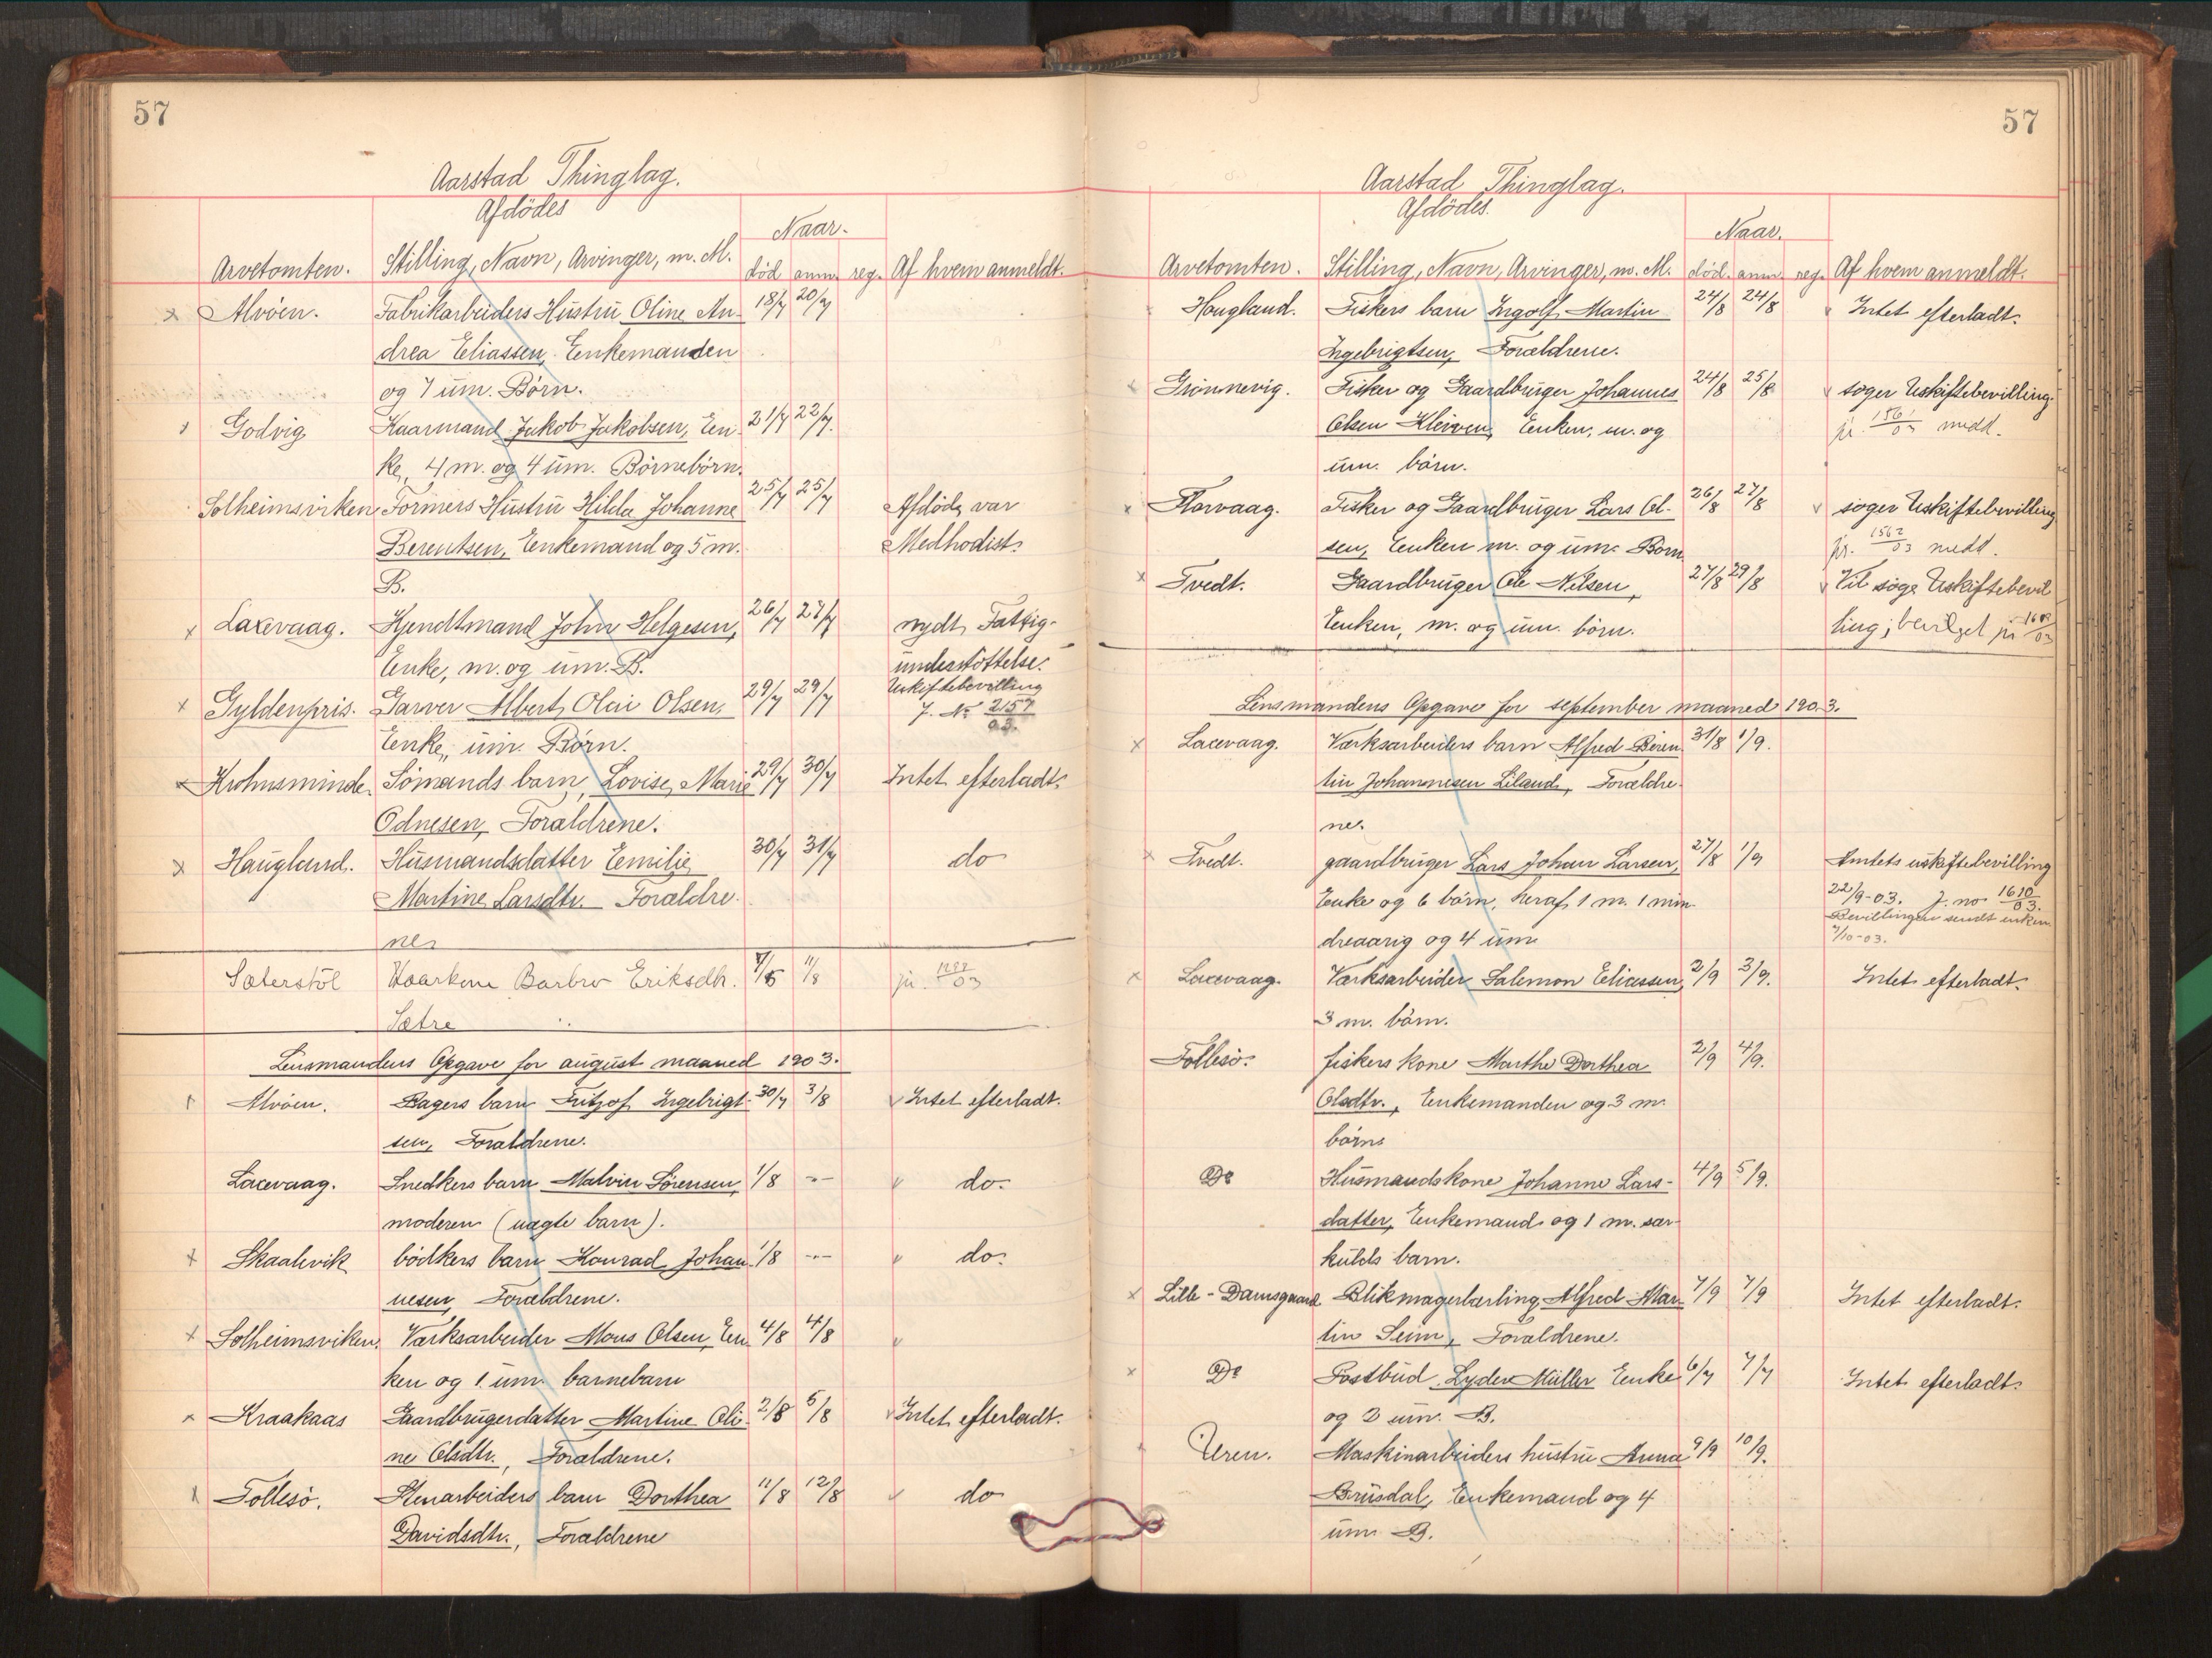 57
Aarstad Thinglag.
Afdödes
Naar.
Arvetomten. Stilling, Navn, Arvinger, m. M. död anm. reg. Af hvem anmeldt.
x Alvöen. Fabrikarbeiders Hustru Oline An- 18/7 20/7
drea Eliassen, Enkemanden
og 7 um. Börn.
Godvig Kaarmand Jakob Jakobsen, En- 21/7 22/7.
ke, 4 m. og 4 um. Börnebörn.
Solheimsviken Formers Hustru Hilda Johanne 25/7 25/7 Afdöde var
Berentsen, Enkemand og 5 m. Medhodist.
B.
x Laxevaag. Kjendtmand John Helgesen, 26/7 27/7 nydt Fattig-
Enke, m. og um. B. understöttelse.
x Gyldenpris. Garver Albert Olai Olsen, 29/7 29/7 Uskiftebevilling
J. No 2157/03.
Enke, um. Börn.
x Krohnsminde. Sömands barn, Lovise Marie 29/7 30/7 Intet efterladt.
Odnesen, Forældrene.
x Haugland. Husmandsdatter Emilie 30/7 31/7 do
Martine Larsdtr. Forældre-
ne.
Sæterstöl Kaarkone Barbro Eriksdtr. 11/8 jr.
Sætre
Lensmandens Opgave for august maaned 1903.
Alvöen. Bagers barn Fritjof Ingebrigt- 30/7 3/8 Intet efterladt.
sen, Forældrene.
Laxevaag. Snedkers barn Malvin Sörensen, 1/8 -"- do.
moderen (uægte barn).
x Skaalevik bödkers barn Konrad Johan- 1/8 -"- do.
nesen, Forældrene.
x Solheimsviken. Værksarbeider Mons Olsen, En- 4/8 4/8
ken og 1 um. barnebarn
x Kraakaas Gaardbrugerdatter Martine Oli- 2/8 5/8 Intet efterladt.
ne Olsdtr., Forældrene.
x Follesö. Stenarbeiders barn Dorthea 11/8 12/8 do
Davidsdtr., Forældrene
57
Aarstad Thinglag.
Afdödes.
Naar.
Arvetomten. Stilling, Navn, Arvinger, m. M. död. anm. reg. Af hvem anmeldt.
Hougland. Fiskers barn Ingolf Martin 24/8 24/8 Intet efterladt.
Ingebrigtsen, Forældrene.
Grönnevig. Fisker og Gaardbruger Johannes 24/8 25/8 söger Uskiftebevilling.
Olsen Kleiven, Enken, m. og jr. 1561/03 medd.
um. börn.
x Florvaag. Fisker og Gaardbruger Lars Ol- 26/8 27/8 söger Uskiftebevilling
sen, Enken m. og um. Börn. jr. 1562/03 medd.
x Tvedt. Gaardbruger Ole Nilsen, 27/8 29/8 Vil söge Uskiftebevil
Enken, m. og um. börn. ling; bevilget jr
Lensmandens Opgave for september maaned 1903.
x Laxevaag. Værksarbeiders barn Alfred Beren- 31/8 1/9.
tin Johannesen Liland, Forældre-
ne.
x Tvedt. gaardbruger Lars Johan Larsen, 27/8 1/9 Amtets uskiftebevilling
Enke og 6 börn, heraf 1 m. 1 min- 22/9-03. J. no 1610/03.
Bevillingen sendt enken
dreaarig og 4 um. 7/10-03.
x Laxevaag. Værksarbeider Salemon Eliassen, 2/9 3/9. Intet efterladt.
3 m. börn.
Follesö. fiskers kone Marthe Dorthea 2/9 4/9.
Olsdtr., Enkemanden og 3 m.
börn.
Do Husmandskone Johanne Lars- 4/9 5/9.
datter, Enkemand og 1 m. sær-
kulds barn.
x Lille-Damsgaard Blikmagerlærling Alfred Mar- 7/9 7/9 Intet efterladt.
tin Seim, Forældrene.
x Do Postbud Lyder Müller Enke 6/7 7/7 Intet efterladt.
og 2 um. B.
Uren. Maskinarbeiders hustru Anna 9/9 10/9.
Brusdal, Enkemand og 4
um. B.